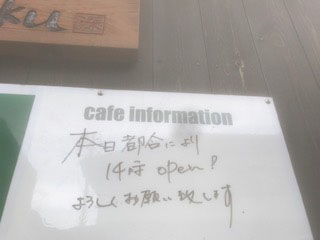 ku
cafe information
本日都合により
14時 open?
よろしくお願い致します